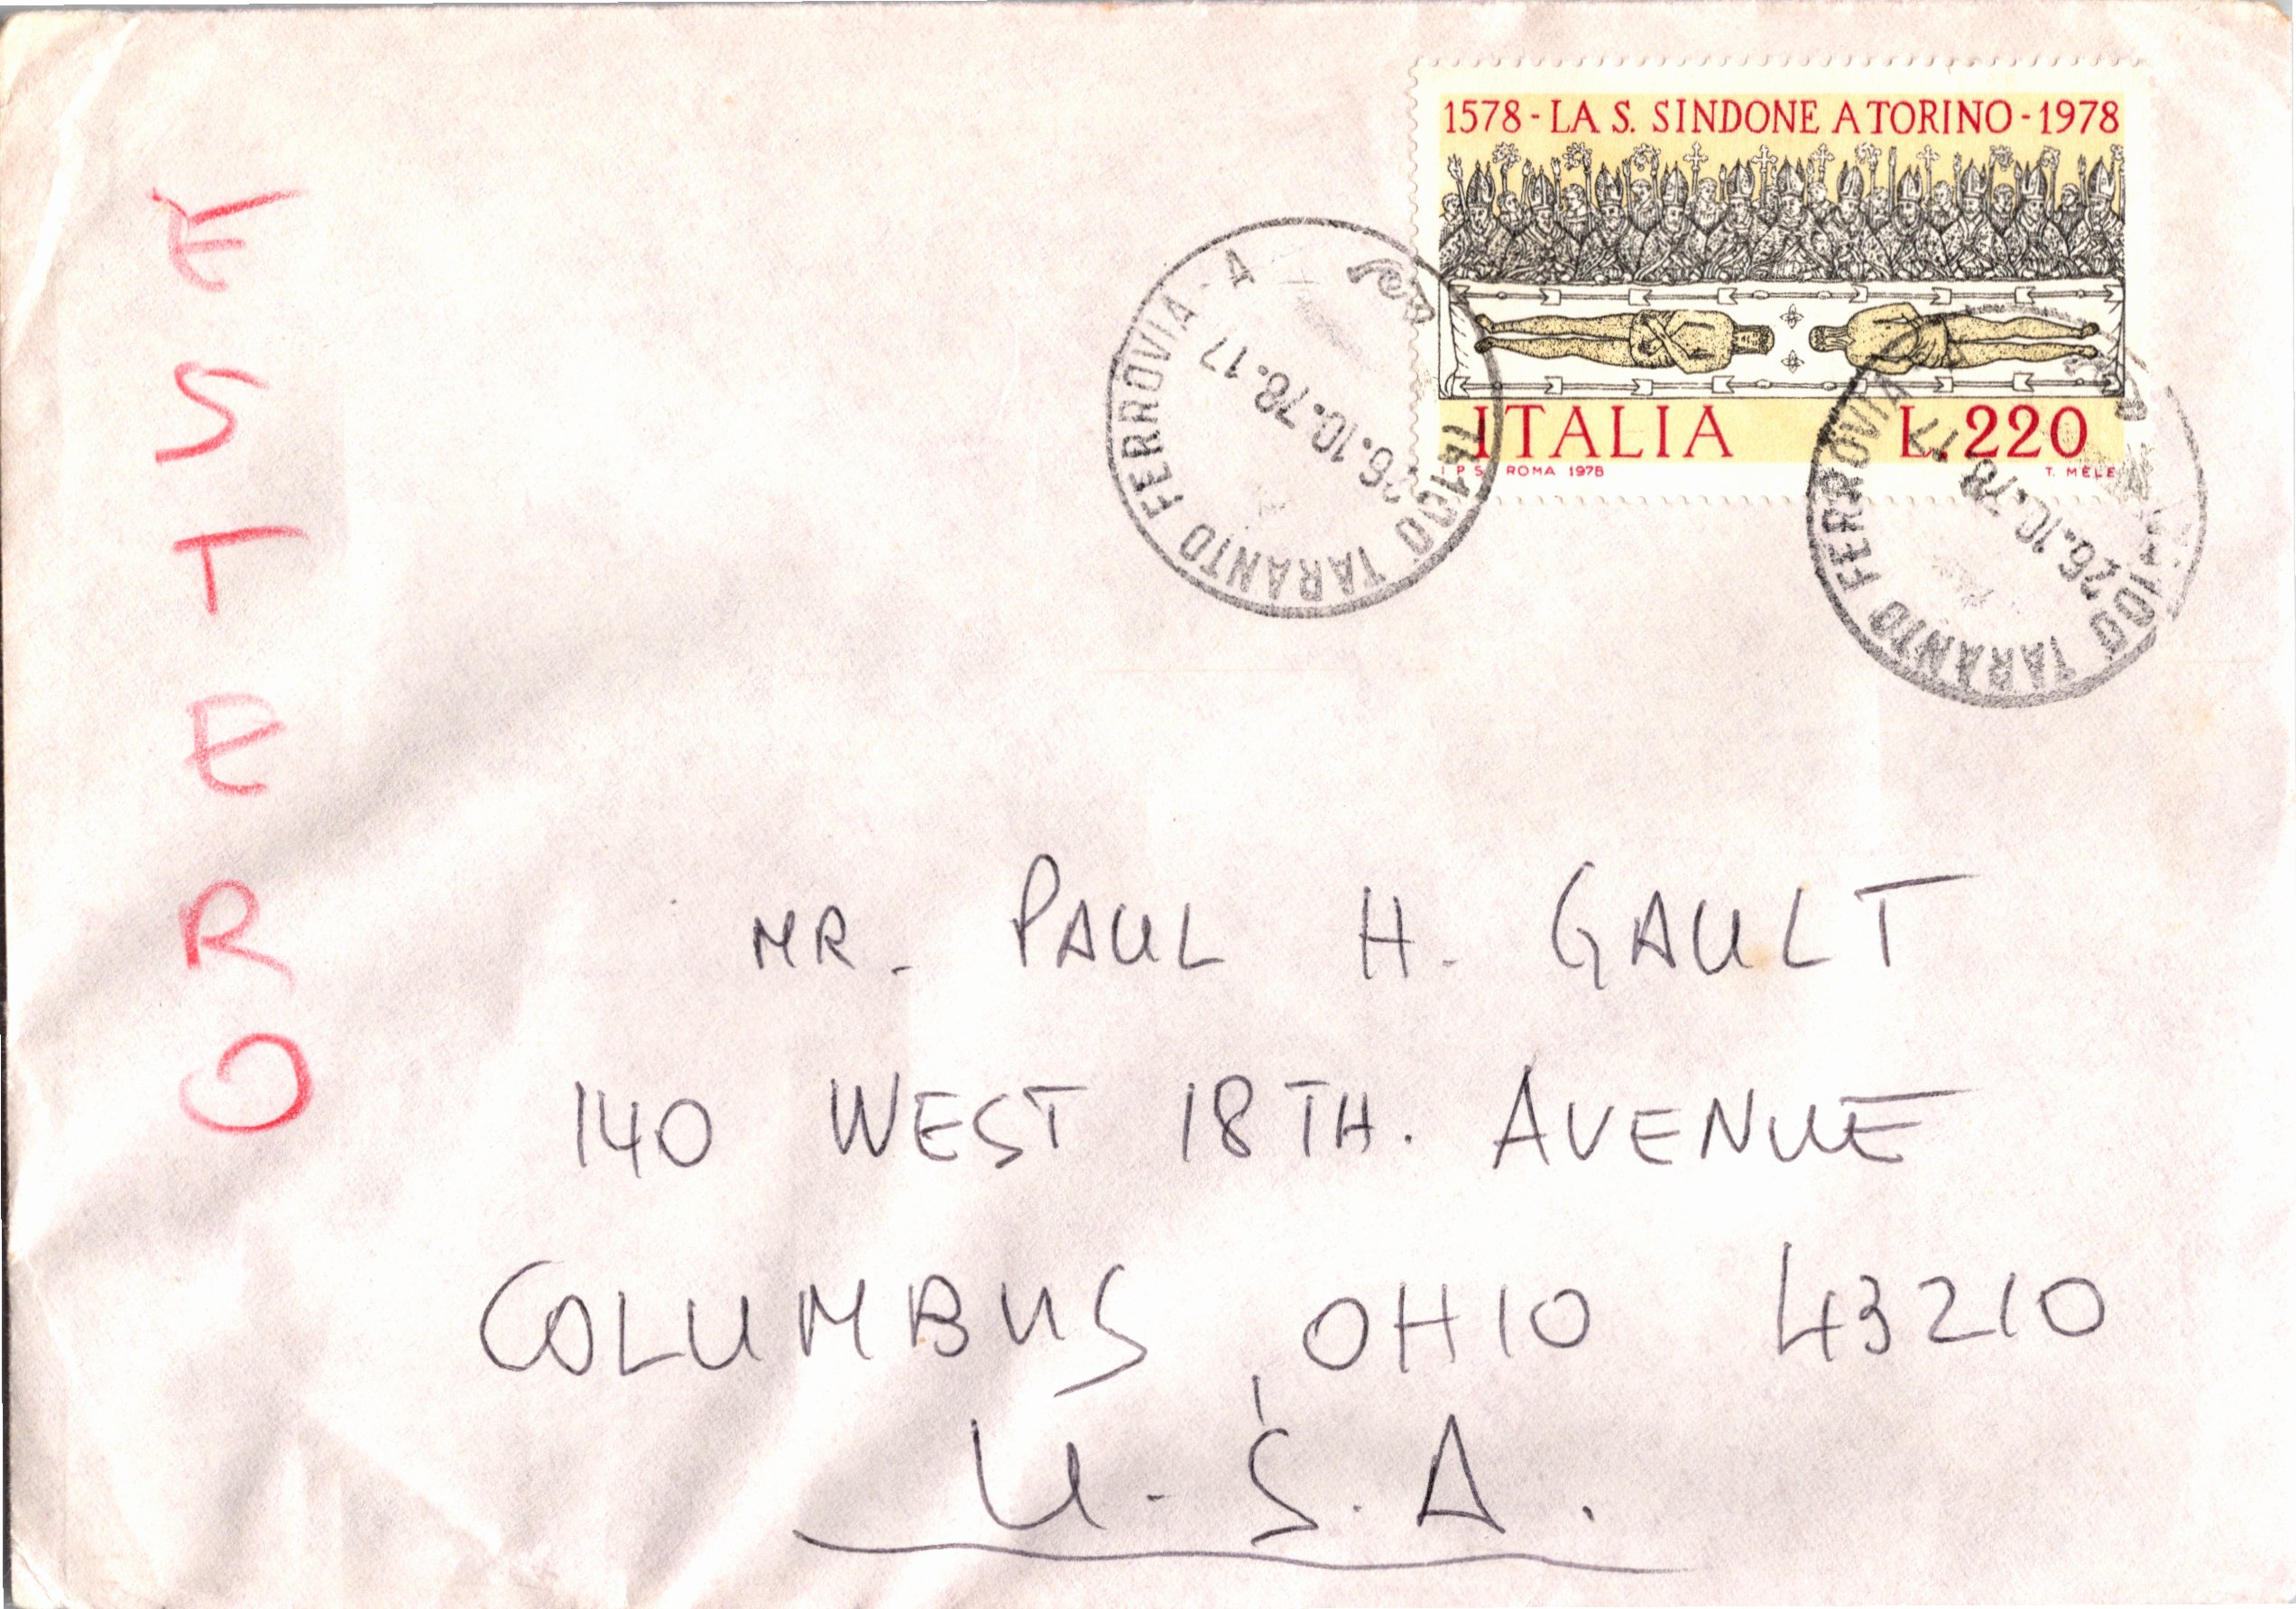 1578 - LA S. SINDONE A TORINO - 1978
ITALIA L.220
I.P.S. ROMA 1978 T. MELE
74100 TARANTO FERROVIA - A
26.10.78.17
74100 TARANTO FERROVIA
26.10.78.17
ESTERO
MR. PAUL H. GAULT
140 WEST 18TH. AVENUE
COLUMBUS, OHIO 43210
U.S.A.